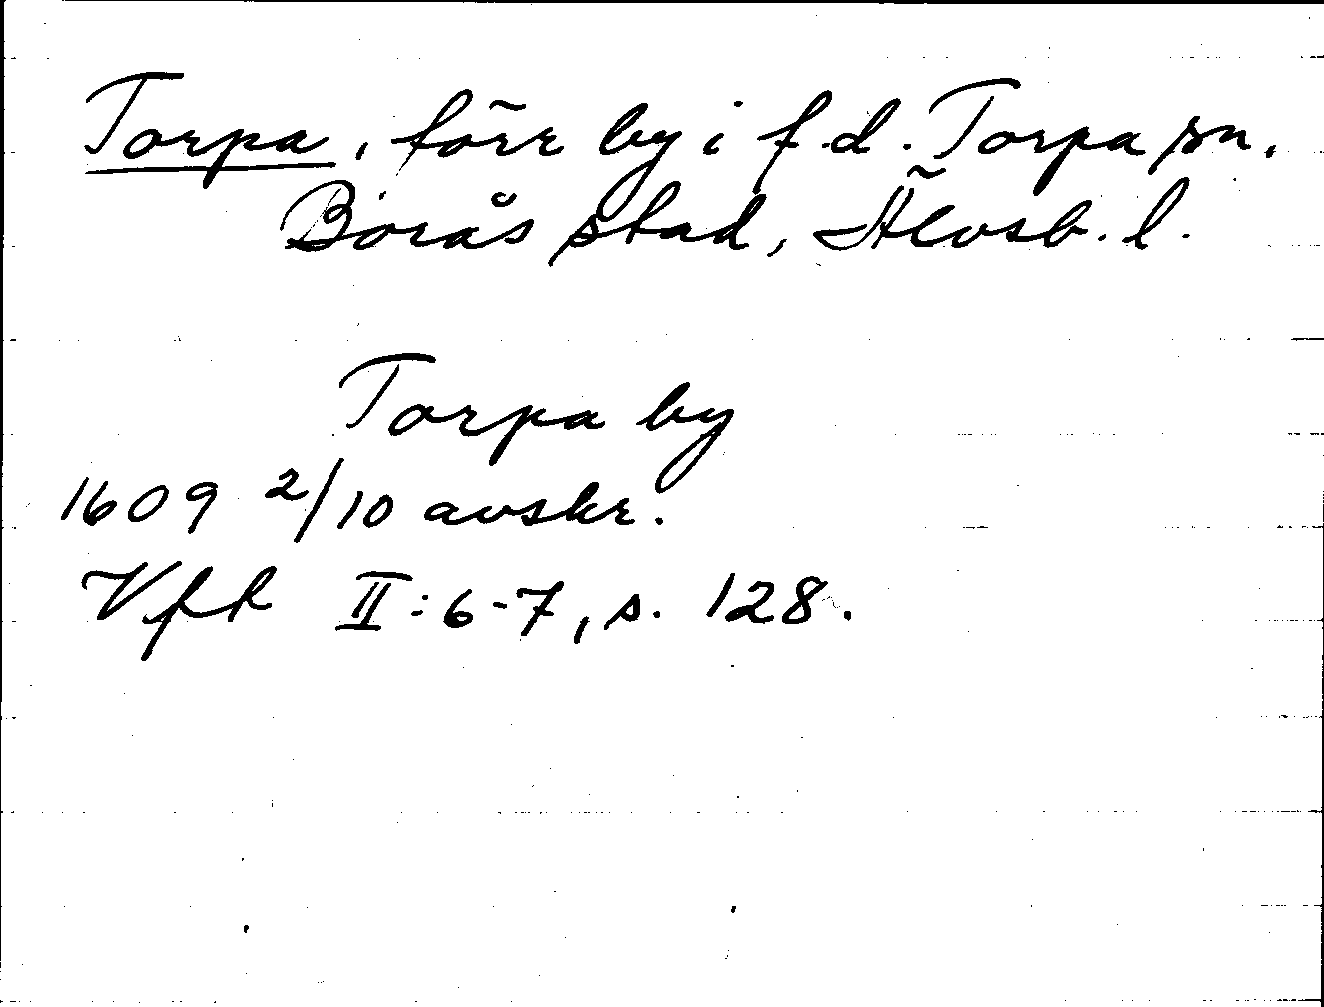 Torpa, förr by i f.d. Torpa sn,
Borås stad, Älvsb. l.
Torpa by
1609 2/10 avskr.
Vfh II:6-7, s. 128.